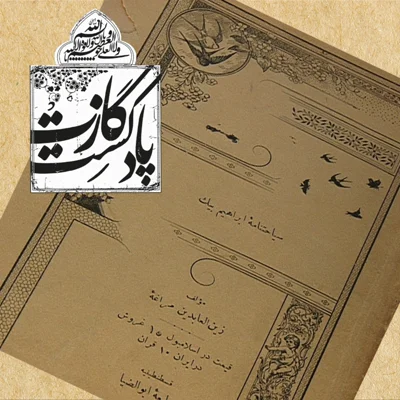 پادکست گازت
سیاحتنامهٔ ابراهیم بیک
مؤلف
زین العابدین مراغهٔ
قیمت در اسلامبول ١٥ غروش
در ایران ١٠ قران
قسطنطینیه
ابوالضیا